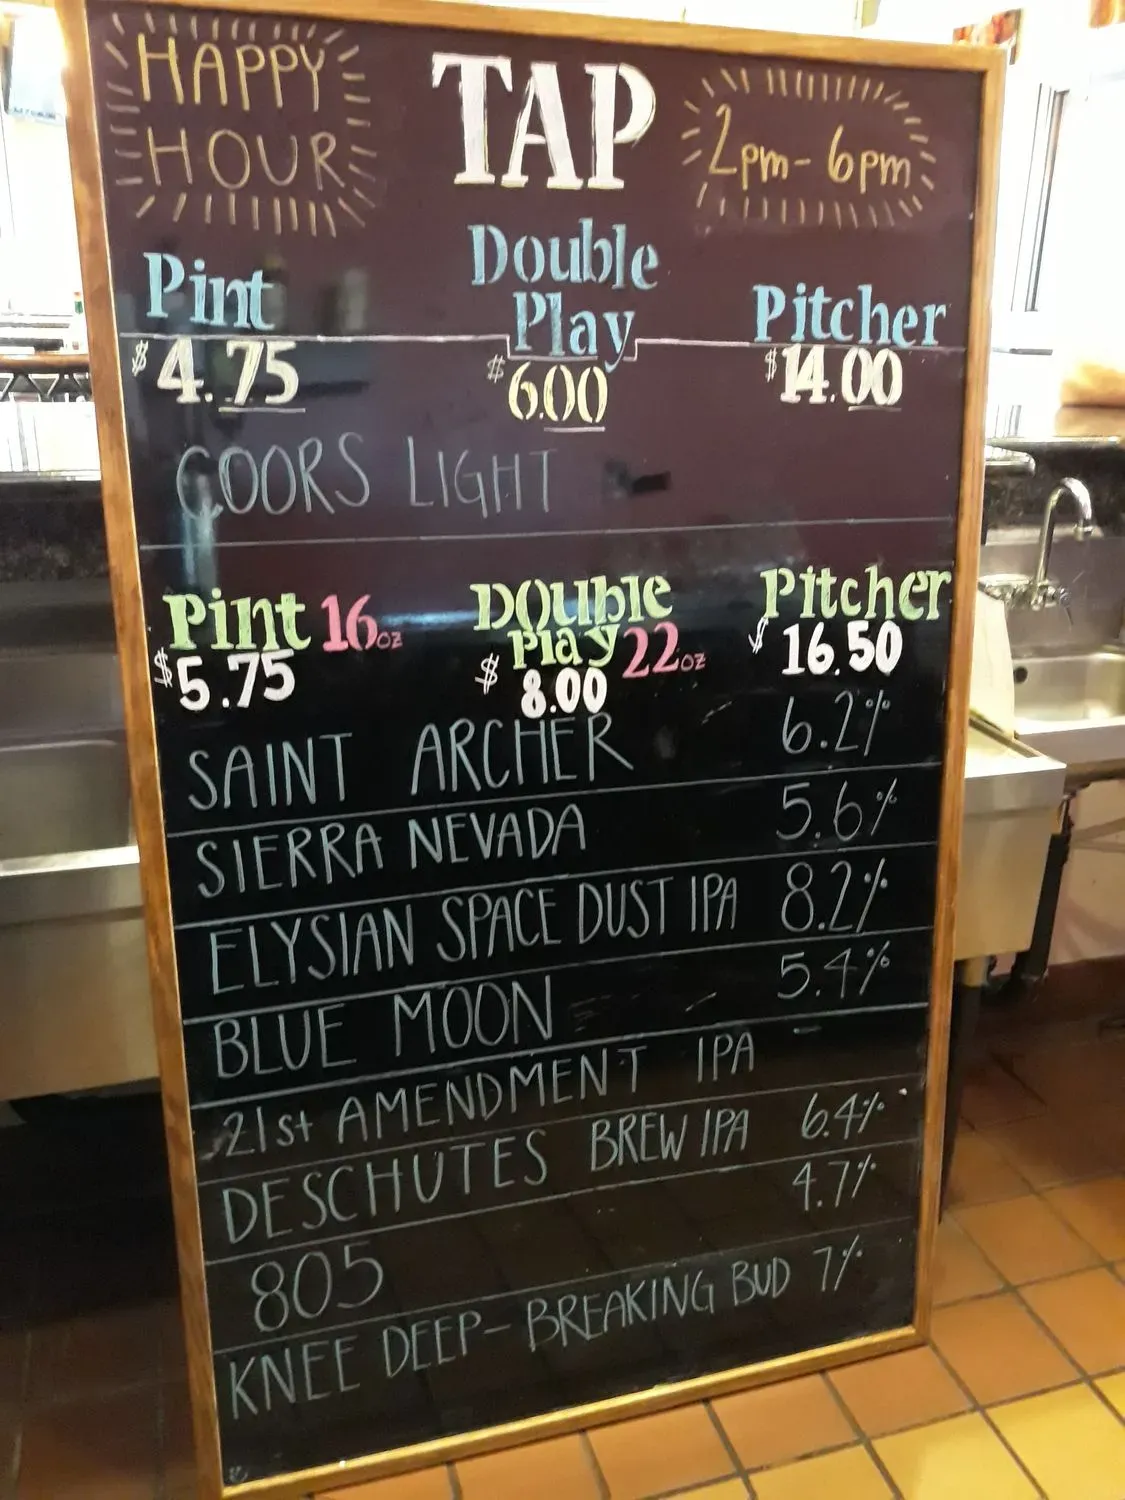 HAPPY HOUR
TAP
2pm - 6pm
Pint
Double Play
Pitcher
$4.75
$6.00
$14.00
COORS LIGHT
Pint 16oz
Double Play 22oz
Pitcher
$5.75
$8.00
$16.50
SAINT ARCHER 6.2%
SIERRA NEVADA 5.6%
ELYSIAN SPACE DUST IPA 8.2%
BLUE MOON 5.4%
21st AMENDMENT IPA -
DESCHUTES BREW IPA 6.4%
805 4.7%
KNEE DEEP - BREAKING BUD 7%